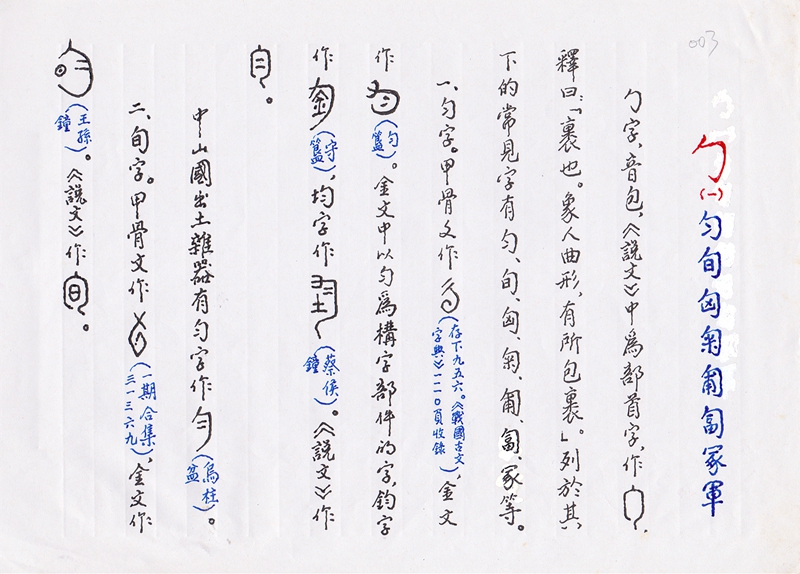 003
勹(一)勻旬匈匊匍匐冢軍
勹字,音包,《說文》中為部首字,作
釋曰:「裹也。象人曲形,有所包裹。」列於其
下的常見字有勻、旬、匈、匊、匍、匐、冢等。
一、勻字。甲骨文作(存下九五六。《戰國古文字典》一一一〇頁收錄),金文
作(勻簋)。金文中以勻為構字部件的字,鈞字
作(守簋),均字作(蔡侯鐘)。《說文》作
。
中山國出土雜器有勻字作(鳥柱盆)。
二、旬字。甲骨文作(一期合集三一三六九),金文作
(王孫鐘)。《說文》作。